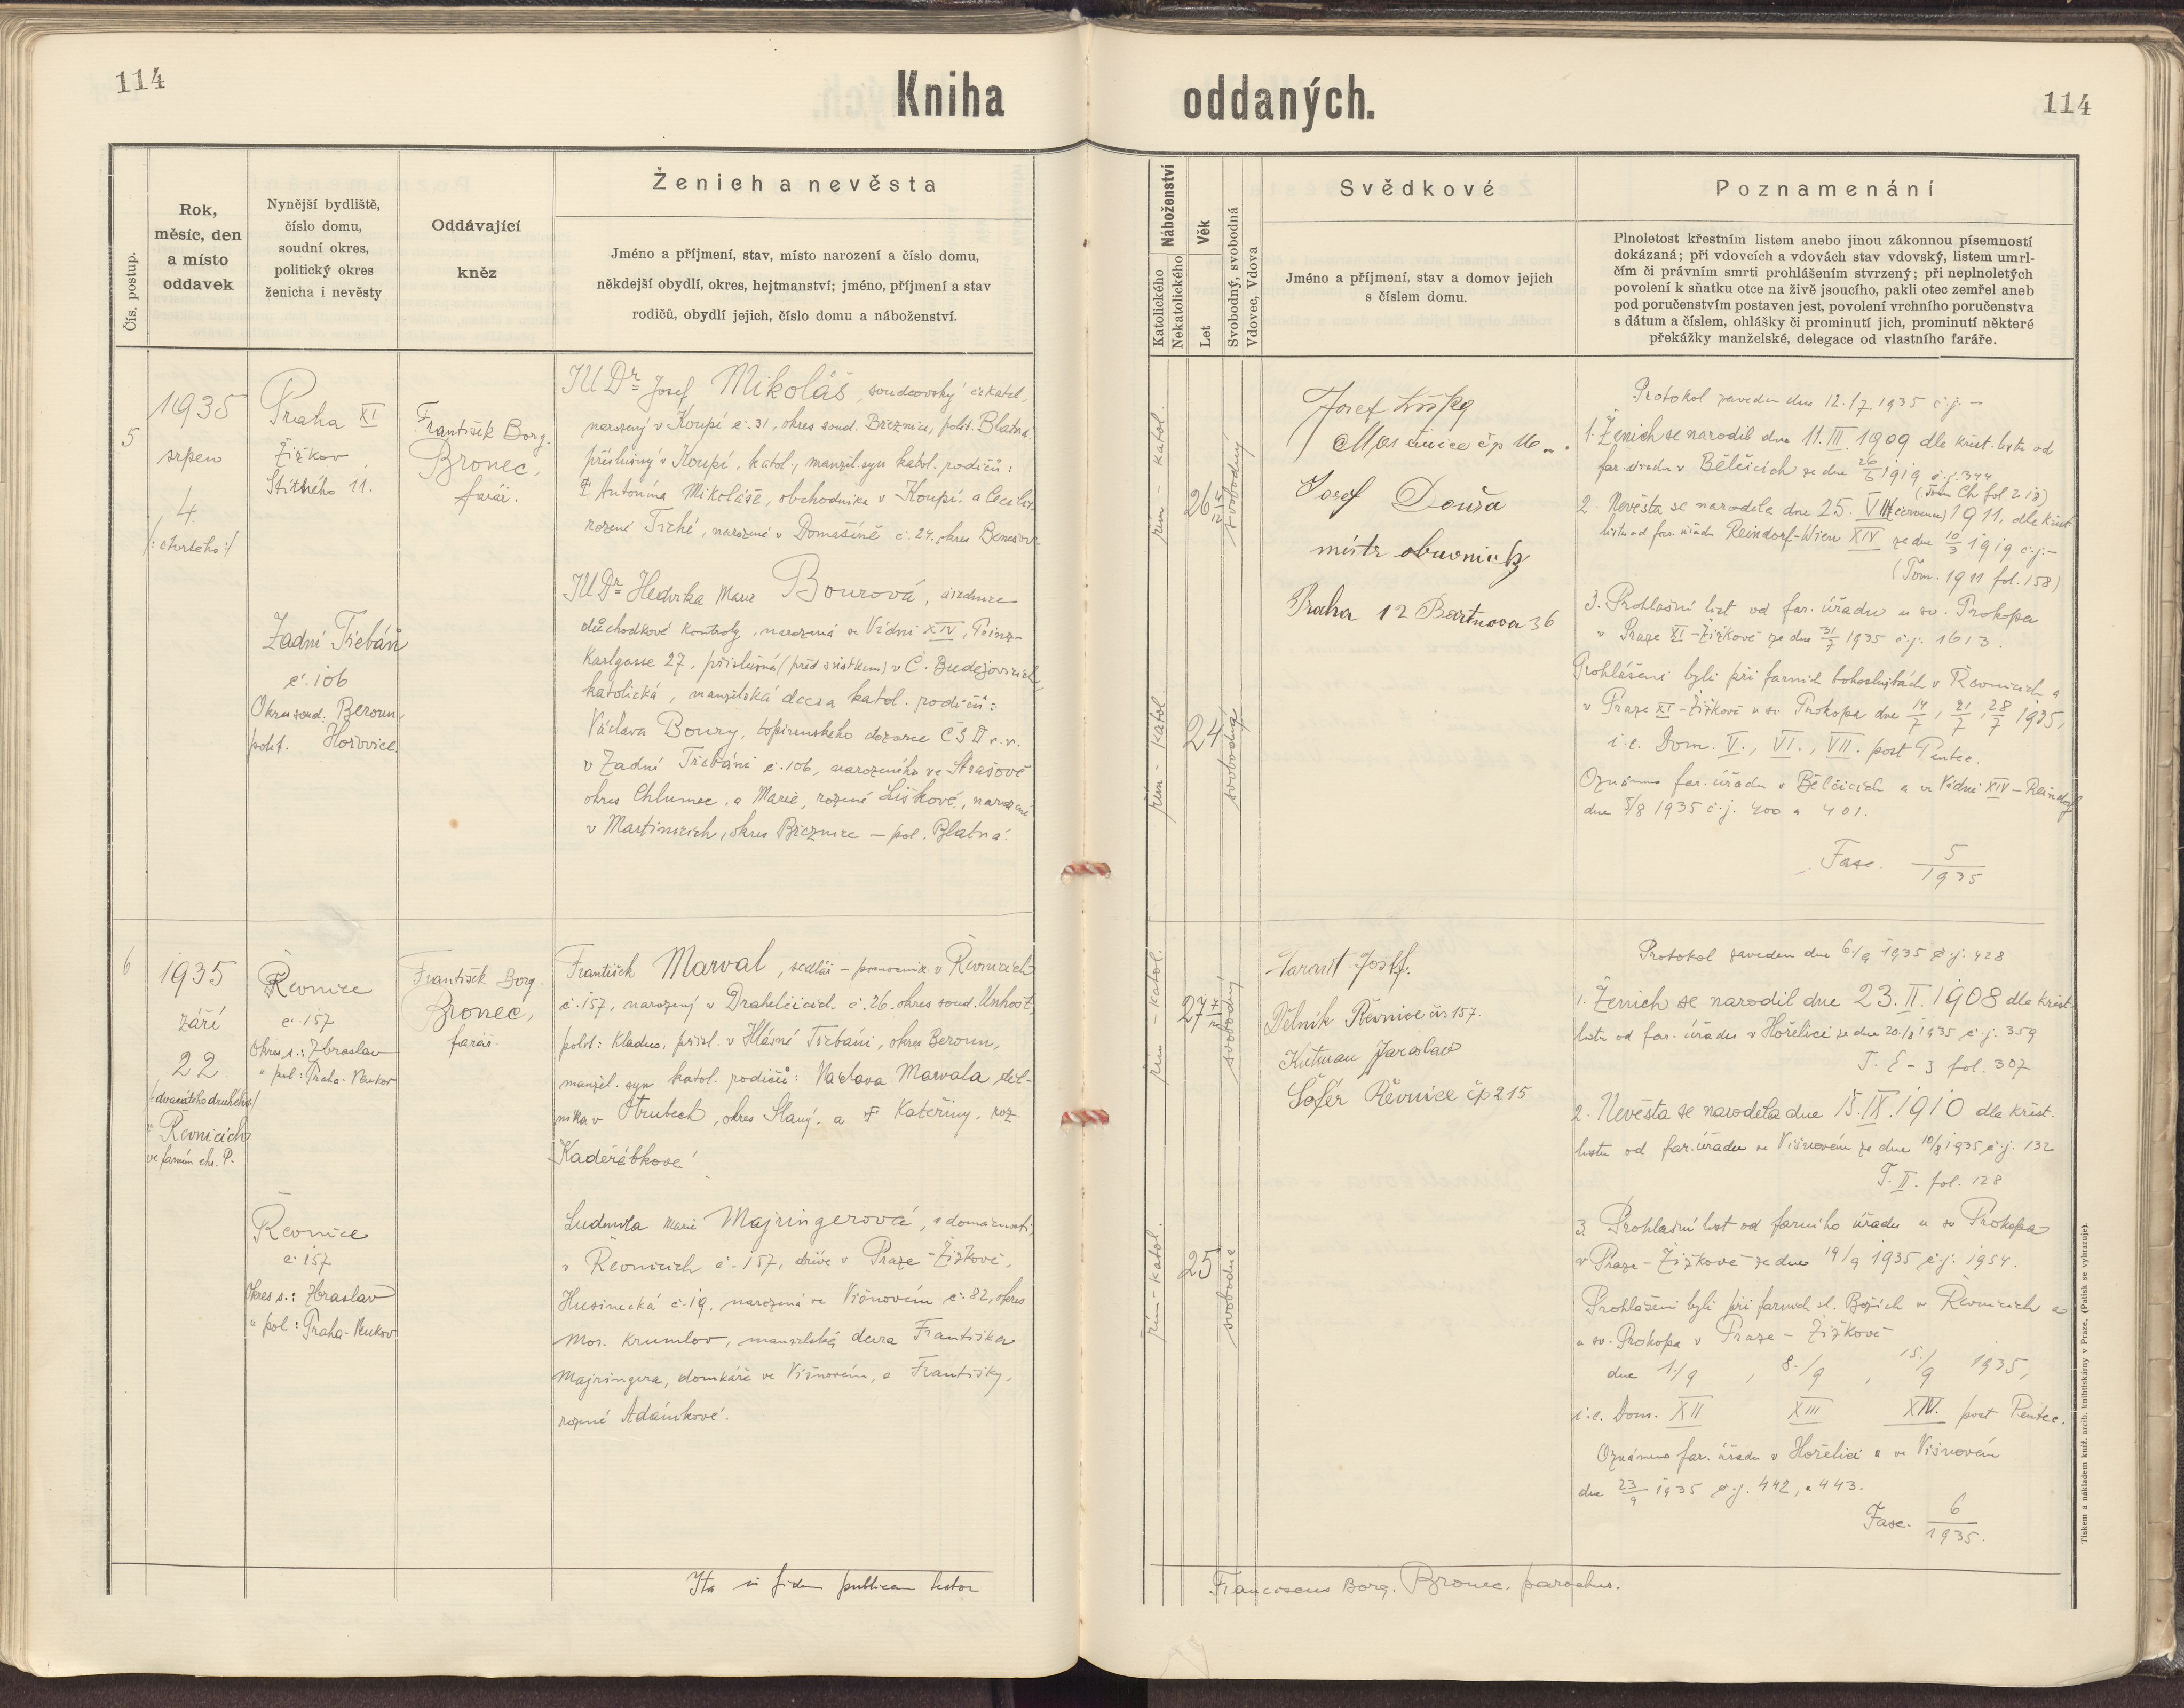 114
Kniha oddaných.
114
Čís. postup.
Rok,
měsíc, den
a místo
oddavek
Nynější bydliště,
číslo domu,
soudní okres,
politický okres
ženicha i nevěsty
Oddávající
kněz
Ženich a nevěsta
Jméno a příjmení, stav, místo narození a číslo domu,
někdejší obydlí, okres, hejtmanství; jméno, příjmení a stav
rodičů, obydlí jejich, číslo domu a náboženství.
Náboženství
Katolického
Nekatolického
Věk
Let
Svobodný, svobodná
Vdovec, Vdova
Svědkové
Jméno a příjmení, stav a domov jejich
s číslem domu.
Poznamenání
Plnoletost křestním listem anebo jinou zákonnou písemností
dokázaná; při vdovcích a vdovách stav vdovský, listem umrl-
čím či právním smrti prohlášením stvrzený; při neplnoletých
povolení k sňatku otce na živě jsoucího, pakli otec zemřel aneb
pod poručenstvím postaven jest, povolení vrchního poručenstva
s dátum a číslem, ohlášky či prominutí jich, prominutí některé
překážky manželské, delegace od vlastního faráře.
5
1935
srpen
4.
/: čtvrtého :/
Praha XI
Žižkov
Štítného 11.
Zadní Třebáň
č. 106
Okres soud. Beroun,
polit. Hořovice.
František Borg.
Bronec,
farář.
JUDr Josef Mikoláš, soudcovský čekatel,
narozený v Koupí č. 31, okres soud. Březnice, polit. Blatná
příslušný v Koupí, katol., manžel. syn katol. rodičů:
† Antonína Mikoláše, obchodníka v Koupí. a Cecilie,
rozené Tiché, narozené v Domašíně č. 24. okres Benešov.
JUDr Hedvika Marie Bourová, úřednice
důchodkové kontroly, narozená ve Vídni XIV, Prinz-
Karlgasse 27. příslušná (před sňatkem) v Č. Budějovicích,
katolická, manželská dcera katol. rodičů:
Václava Boury, topírenského dozorce ČSD v. v.
v Zadní Třebáni č. 106, narozeného ve Strašově
okres Chlumec, a Marie, rozené Liškové, narozené
v Martinicích, okres Březnice – pol. Blatná.
řím - katol.
26
svobodný
řím - katol.
24
svobodná
Josef Liška
Martinice čp 16
Josef Douša
mistr obuvnický
Praha 12 Bartnova 36
Protokol zaveden dne 12./7. 1935 č.j. –
1. Ženich se narodil dne 11. III. 1909 dle křest. listu od
far. úřadu v Bělčicích ze dne 26/6 1919 č.j. 344
(Tom Ch fol. 218)
2. Nevěsta se narodila dne 25. VII (července) 1911, dle křest
listu od far. úřadu Reindorf-Wien XIV ze dne 10/3 1919 č.j. –
(Tom. 1911 fol. 158)
3. Prohlašní list od far. úřadu u sv. Prokopa
v Praze XI - Žižkově ze dne 31/7 1935 č.j. 1613.
Prohlášeni byli při farních bohoslužbách v Řevnicích a
v Praze XI - Žižkově u sv. Prokopa dne 14/7, 21/7, 28/7 1935,
i.e. Dom. V., VI., VII. post Pentec.
Oznámeno far. úřadu v Bělčicích a ve Vídni XIV – Reindorf
dne 5/8 1935 č.j. 400 a 401.
Fasc. 5/1935
6
1935
září
22.
/dvacátého druhého/
v Řevnicích
ve farním chr. P.
Řevnice
č. 157
Okres s.: Zbraslav
" pol: Praha-Venkov
Řevnice
č. 157
Okres s.: Zbraslav
" pol: Praha-Venkov
František Borg.
Bronec,
farář.
František Marval, sedlář – pomocník v Řevnicích
č. 157, narozený v Drahelčicích č. 26. okres soud. Unhošť,
polit: Kladno, přísl. v Hlásné Třebáni, okres Beroun,
manžel. syn katol. rodičů: Václava Marvala děl-
níka v Otrubech, okres Slaný. a † Kateřiny, roz.
Kadeřábkové
Ludmila Marie Majringerová, v domácnosti,
v Řevnicích č. 157, dříve v Praze - Žižkově,
Husinecká č. 19. narozená ve Višňovém č. 82, okres
Mor. Krumlov, manželská dcera Františka
Majringera, domkáře ve Višňovém, a Františky,
rozené Adámkové.
řím - katol.
27
svobodný
řím - katol.
25
svobodná
Josef.
Dělník Řevnice čís 157.
Kutman Jaroslav
Šofér Řevnice čp 215
Protokol zaveden dne 6./9 1935 č.j. 428
1. Ženich se narodil dne 23. II. 1908 dle křest
listu od far. úřadu v Hořelici ze dne 20./8 1935 č.j. 359
T. E - 3 fol. 307
2. Nevěsta se narodila dne 15. IX. 1910 dle křest.
listu od far. úřadu ve Višňovém ze dne 10/8 1935 č.j. 132
T. II. fol. 128
3. Prohlašní list od farního úřadu u sv Prokopa
v Praze - Žižkově ze dne 19/9 1935 č.j. 1954.
Prohlášeni byli při farních sl. Božích v Řevnicích a
u sv. Prokopa v Praze - Žižkově
dne 1./9, 8./9, 15./9 1935,
i.e. Dom. XII XIII XIV. post Pentec.
Oznámeno far. úřadu v Hořelici a ve Višňovém
dne 23/9 1935 č.j. 442, a 443.
Fasc. 6/1935.
Ita in fidem publicam testor
Franciscus Borg. Bronec, parochus.
Tiskem a nákladem kníž. arcib. knihtiskárny v Praze, (Patisk se vyhrazuje).